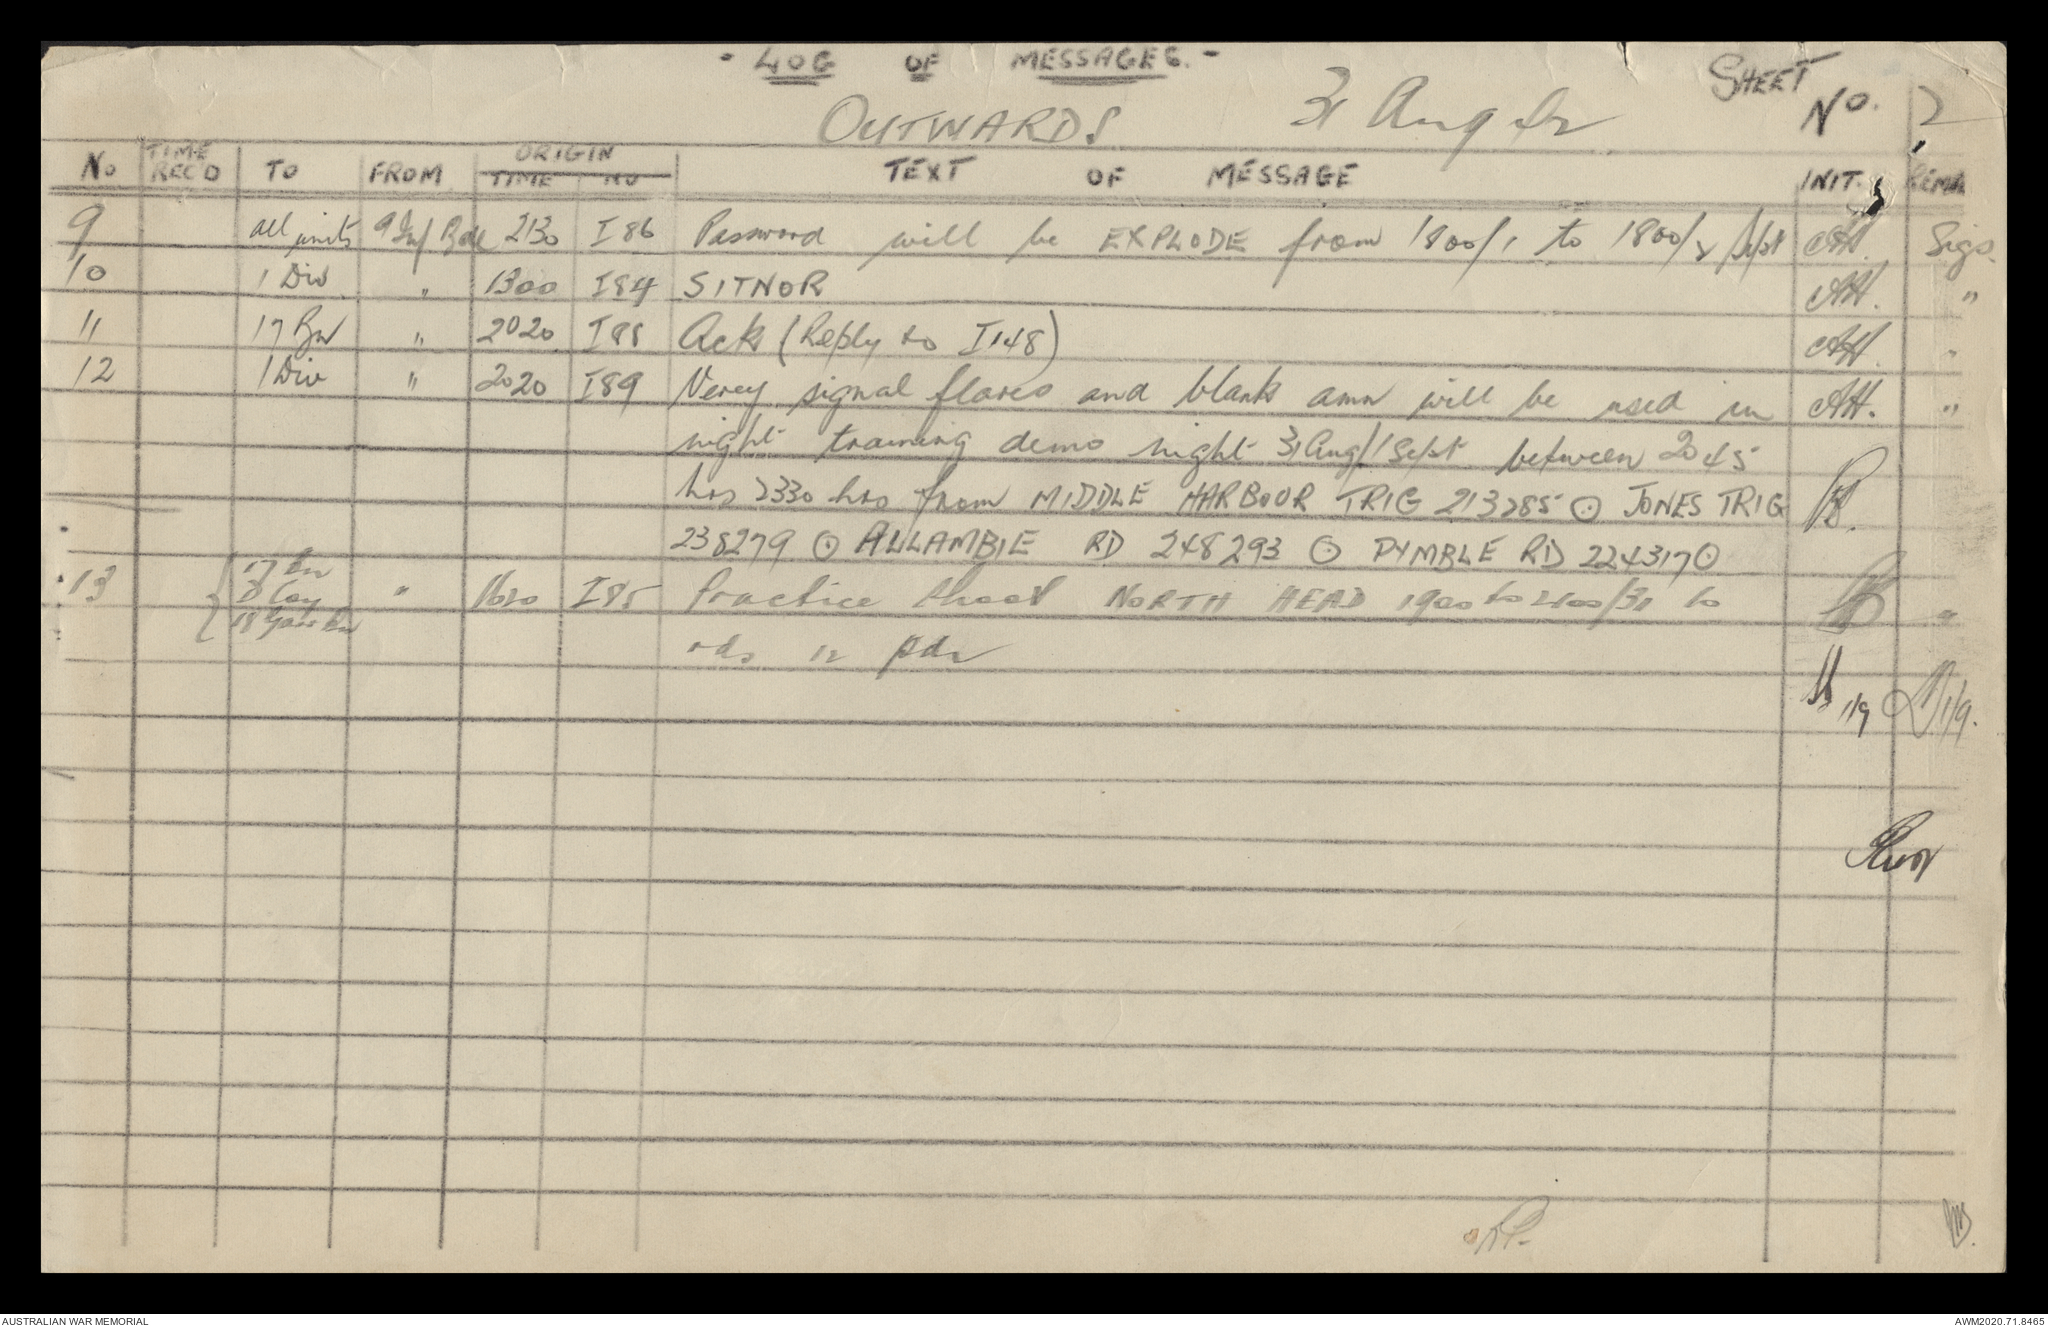 - LOG OF MESSAGES. -
OUTWARDS 31 Aug 42 SHEET No. 2
No TIME REC'D TO FROM ORIGIN TIME NO TEXT OF MESSAGE INIT. REMA
9 all units 9 Inf Bde 2130 I86 Password will be EXPLODE from 1800/1 to 1800/2 Sept AH. Sigs.
10 1 Div " 1300 I84 SITNOR AH. "
11 17 Bn " 2020 I88 Ack (Reply to I148) AH. "
12 1 Div " 2020 I89 Verey signal flares and blank amn will be used in AH. "
night training demo night 31 Aug/1 Sept between 2045
hrs 2330 hrs from MIDDLE HARBOUR TRIG 213285 ⊙ JONES TRIG
238279 ⊙ ALLAMBIE RD 248293 ⊙ PYMBLE RD 224317 ⊙
13 17 Bn " I85 Practice shoot NORTH HEAD 1900 to 2100/31 10 "
rds 12 pdr
1/9 1/9.
AUSTRALIAN WAR MEMORIAL
AWM2020.71.8465